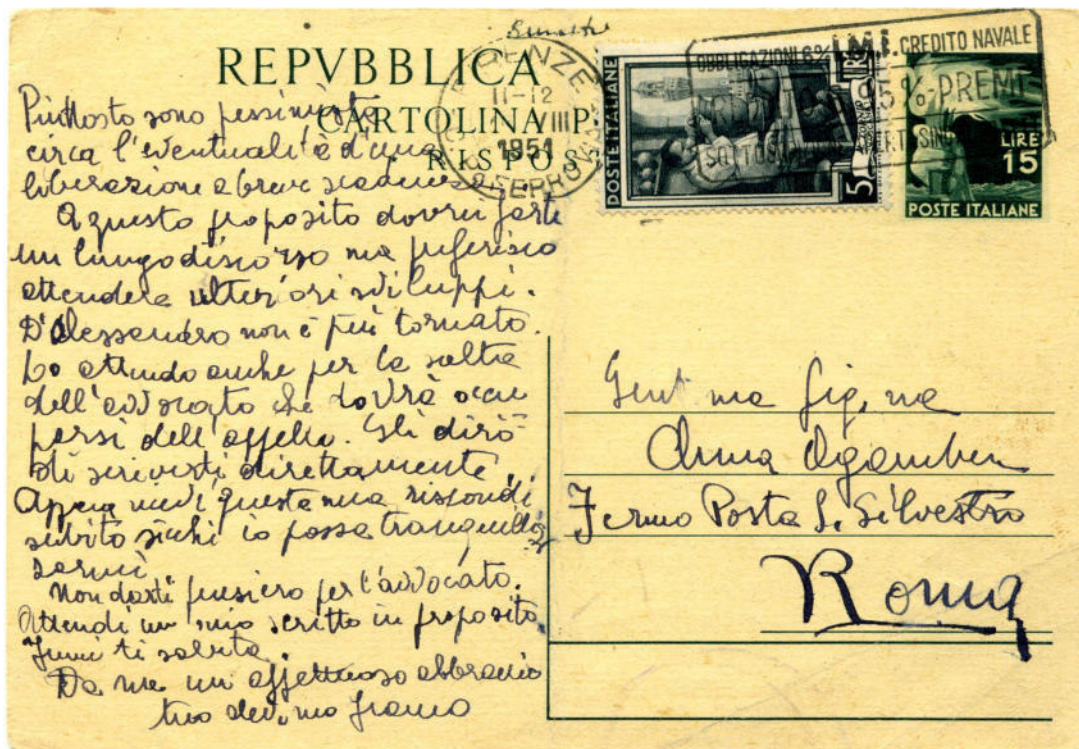 REPVBBLICA
CARTOLINA P
RISPOS
FIRENZE
11-12
VIII
1951
POSTE ITALIANE
5
OBBLIGAZIONI 6%
I.M.I. CREDITO NAVALE
%-PREMI
LIRE
15
POSTE ITALIANE
Piuttosto sono pessimista
circa l'eventualità d'una
liberazione a breve scadenza.
A questo proposito dovrei farti
un lungo discorso ma preferisco
attendere ulteriori sviluppi.
D'Alessandro non è più tornato.
Lo attendo anche per la scelta
dell'avvocato che dovrà occu
parsi dell'appello. Gli dirò
di scriverti direttamente.
Appena ricevi questa mia rispondi
subito sicchè io possa tranquilliz
zarmi.
Non darti pensiero per l'avvocato.
Attendi un mio scritto in proposito.
ti saluta.
Da me un affettuoso abbraccio
tuo dev.mo Franco
Gent.ma Sig.na
Anna Agamben
Fermo Posta S. Silvestro
Roma